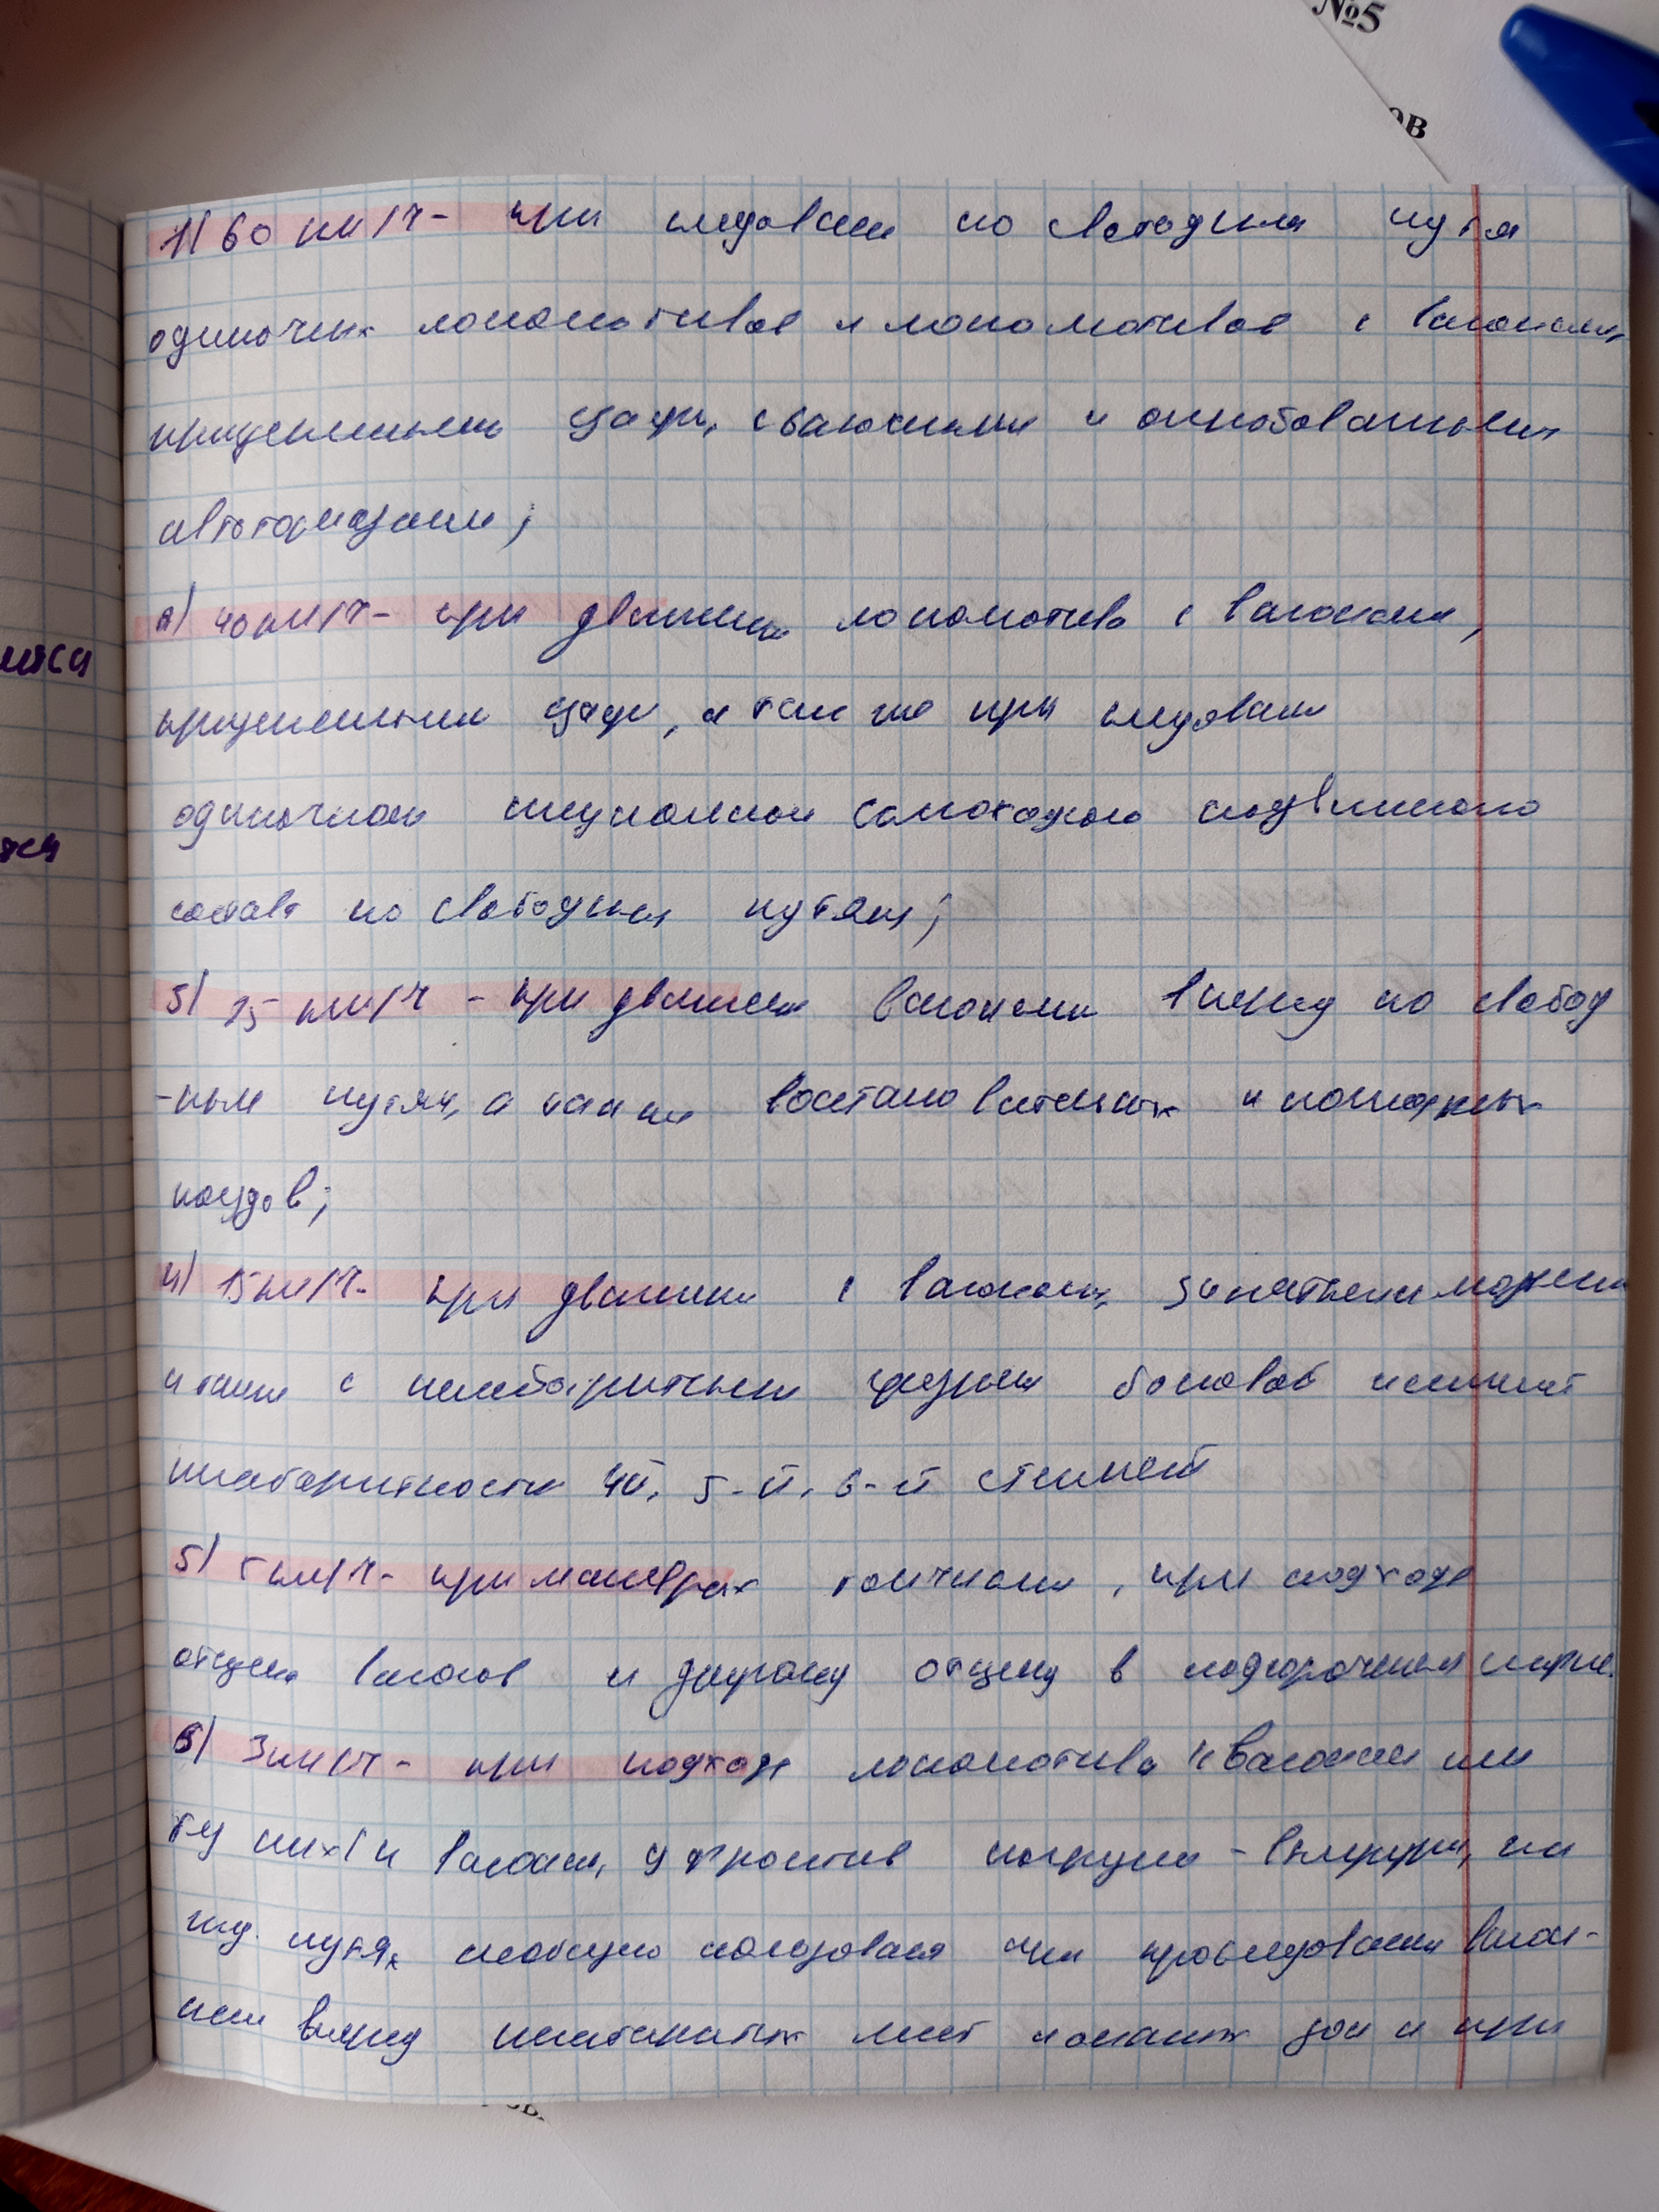 №5
ов
1) 60 км/ч - при следовании по свободным путя
одиночных локомотивов и локомотивов с вагонами,
прицепленными сзади, с включенными и опробованными
автотормозами;
2) 40 км/ч - при движении локомотива с вагонами,
прицепленными сзади, а так же при следовании
одиночного специального самоходного подвижного
состава по свободным путям;
3) 25 км/ч - при движении вагонами вперед по свобод
-ным путям, а также восстановительных и пожарных
поездов;
4) 15 км/ч - при движении с вагонами, занятыми людьми
и также с негабаритными грузами боковой и нижней
негабаритности 4й, 5-й, 6-й степеней
5) 5 км/ч - при маневрах толчками, при подходе
отцепа вагонов к другому отцепу в подгорочном парке.
6) 3 км/ч - при подходе локомотива к вагонам или
к вагонам, у фронтов погрузки - выгрузки, на
жд. путях необщего пользования при проследовании вагон-
ами вперед негабаритных мест и опасных зон и при